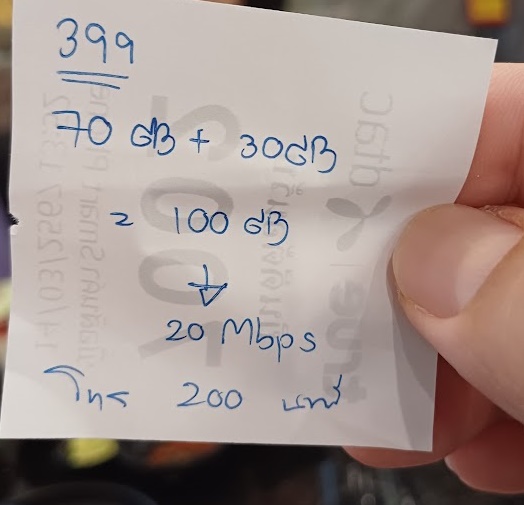 399
70 GB + 30GB
= 100 GB
20 Mbps
โทร 200 นาที